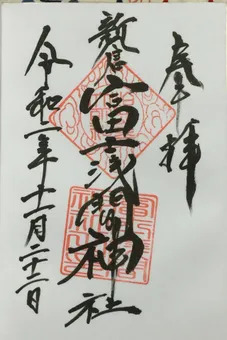 奉拝
新倉富士浅間神社
令和二年十一月二十二日